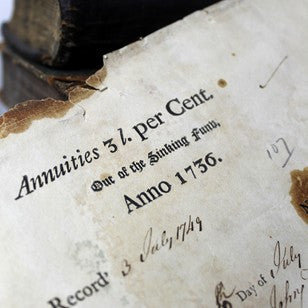 Annuities 3 l. per Cent.
Out of the Sinking Fund,
Anno 1736.
107
Record: 3 July 1749
Day of July
John